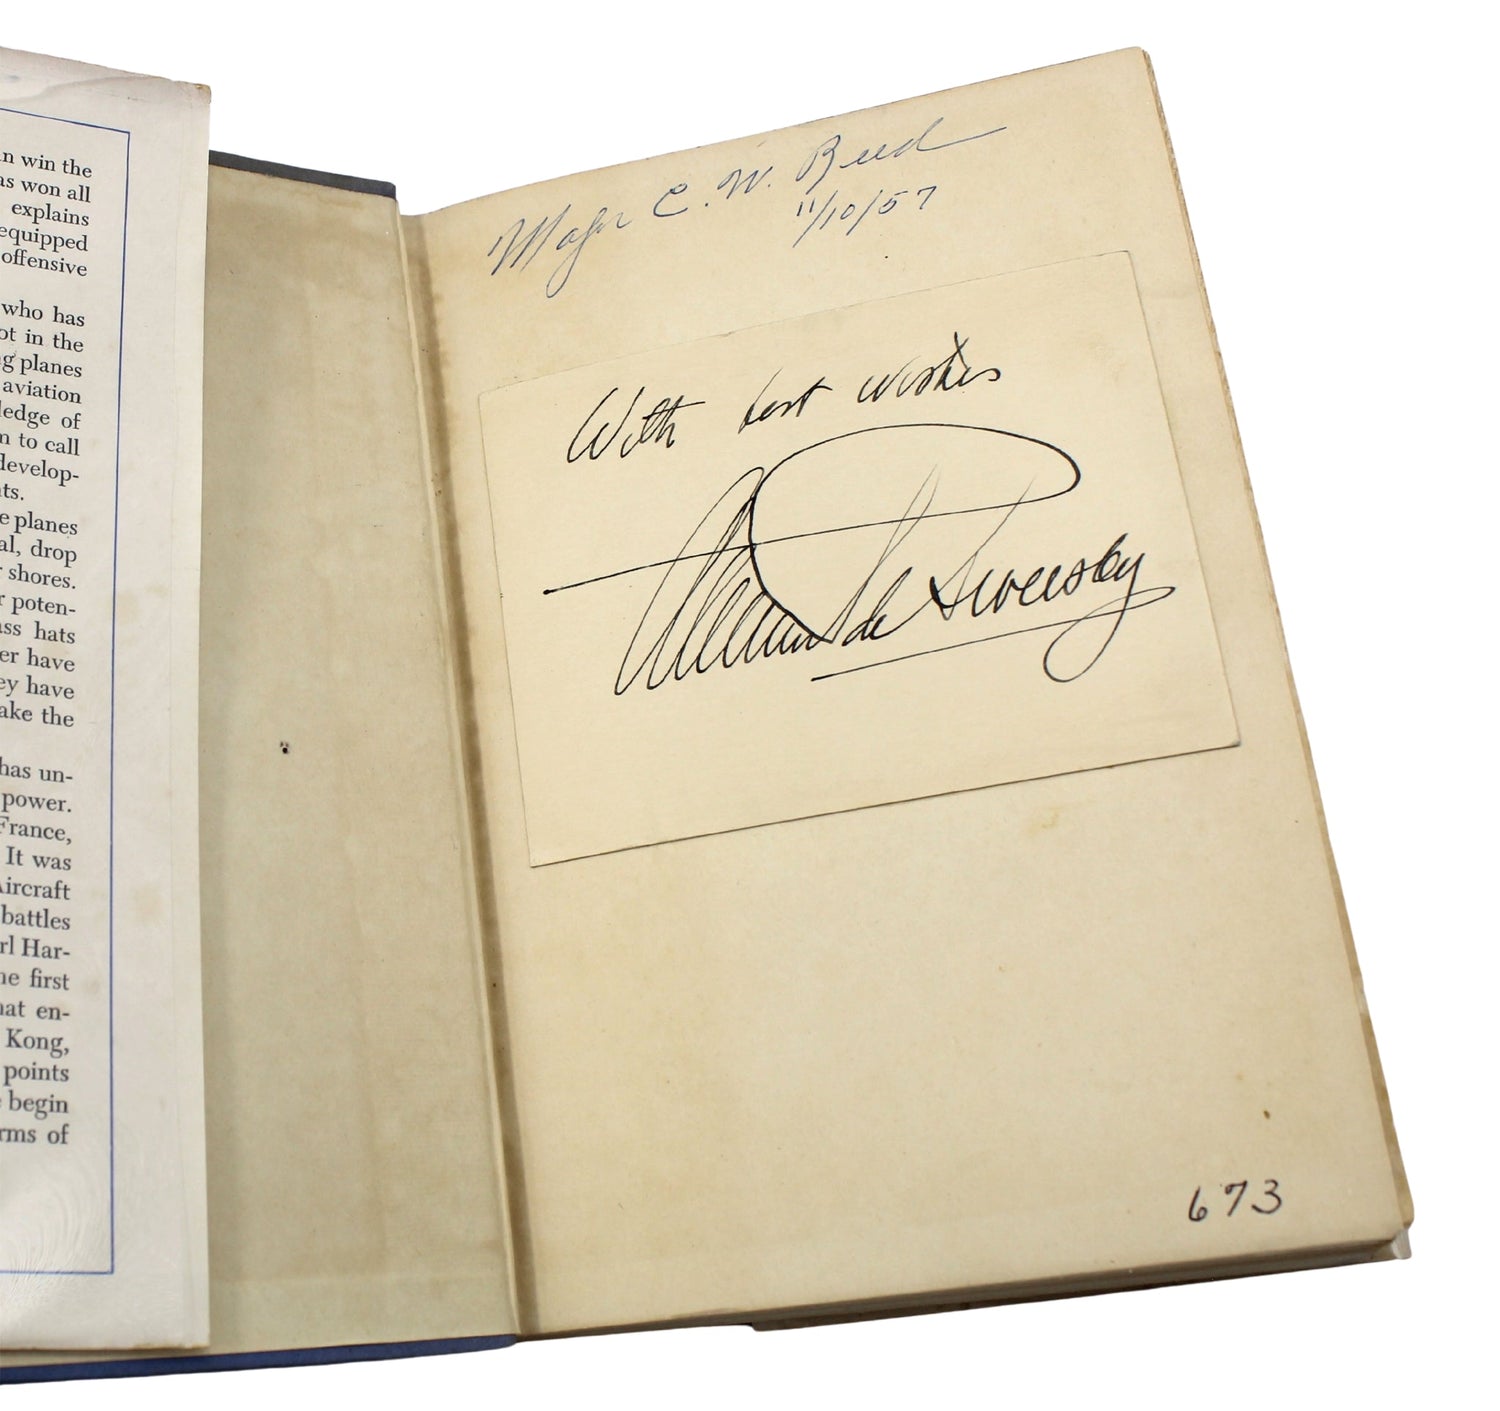 win the
won all
explains
equipped
offensive
who has
in the
planes
aviation
of
to call
develop-
planes
drop
shores.
poten-
hats
have
have
the
has un-
power.
France,
It was
Aircraft
battles
Har-
first
en-
Kong,
points
begin
of
Major C. W. Reed
11/10/57
With best wishes
de Seversky
673